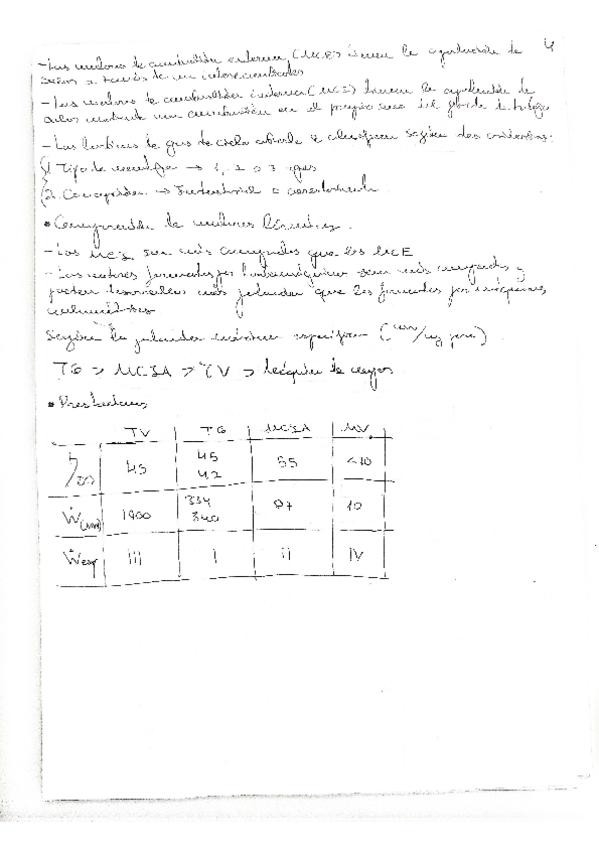 4
- Los motores de combustión externa (MCE) tienen la aportación de
calor a través de un intercambiador
- Los motores de combustión interna (MCI) tienen la aportación de
calor mediante una combustión en el propio seno del fluido de trabajo
- Las turbinas de gas de ciclo abierto se clasifican según dos criterios:
1 Tipo de montaje → 1, 2 o 3 ejes
2. Concepción → Industrial o aeroderivada
• Comparación de motores térmicos.
- Los MCI son más compactos que los MCE
- Los motores formados por turbomáquinas son más compactos y
pueden desarrollar más potencia que los formados por máquinas
volumétricas
Según la potencia máxima específica (/kg)
TG > MCIA > TV > Máquina de vapor
• Prestaciones
TV TG MCIA MV
η/(%) 45 45 55 <10
42
Ẇ(MW) 1900 334 87 10
340
Ẇesp iii i ii iv